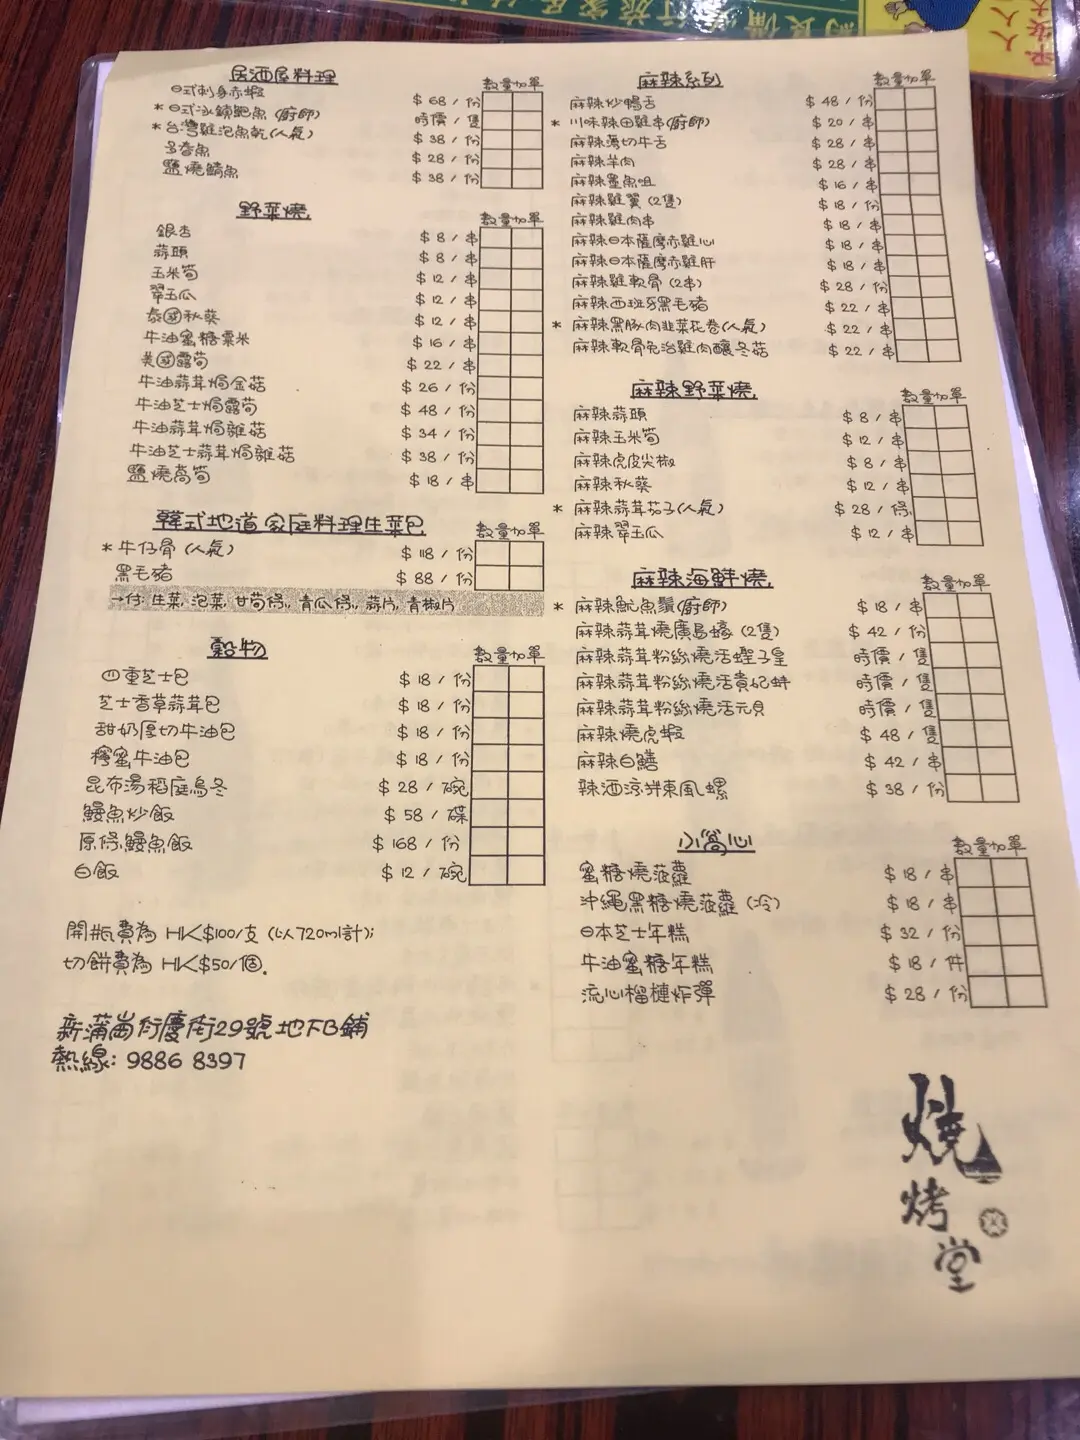 居酒屋料理
數量加單
日式刺身赤蝦 $68/份
*日式汆鎖鮑魚(廚師) 時價/隻
*台灣雞泡魚乾(人氣) $38/份
多春魚 $28/份
鹽燒鯖魚 $38/份
野菜燒
數量加單
銀杏 $8/串
蒜頭 $8/串
玉米筍 $12/串
翠玉瓜 $12/串
泰國秋葵 $12/串
牛油蜜糖粟米 $16/串
美國露筍 $22/串
牛油蒜茸焗金菇 $26/份
牛油芝士焗露筍 $48/份
牛油蒜茸焗雜菇 $34/份
牛油芝士蒜茸焗雜菇 $38/份
鹽燒萵筍 $18/串
韓式地道家庭料理生菜包
數量加單
*牛仔骨(人氣) $118/份
黑毛豬 $88/份
→付: 生菜, 泡菜, 甘筍條, 青瓜條, 蒜片, 青椒片
穀物
數量加單
四重芝士包 $18/份
芝士香草蒜茸包 $18/份
甜奶厚切牛油包 $18/份
檸蜜牛油包 $18/份
昆布湯稻庭烏冬 $28/碗
鰻魚炒飯 $58/碟
原條鰻魚飯 $168/份
白飯 $12/碗
開瓶費為 HK$100/支 (以720ml計);
切餅費為 HK$50/個.
新蒲崗衍慶街29號地下B鋪
熱線: 9886 8397
麻辣系列
數量加單
麻辣炒鴨舌 $48/份
*川味辣田雞串(廚師) $20/串
麻辣薄切牛舌 $28/串
麻辣羊肉 $28/串
麻辣墨魚咀 $16/串
麻辣雞翼(2隻) $18/份
麻辣雞肉串 $18/串
麻辣日本薩摩赤雞心 $18/串
麻辣日本薩摩赤雞肝 $18/串
麻辣雞軟骨(2串) $28/份
麻辣西班牙黑毛豬 $22/串
*麻辣黑豚肉韭菜花卷(人氣) $22/串
麻辣軟骨免治雞肉釀冬菇 $22/串
麻辣野菜燒
數量加單
麻辣蒜頭 $8/串
麻辣玉米筍 $12/串
麻辣虎皮尖椒 $8/串
麻辣秋葵 $12/串
*麻辣蒜茸茄子(人氣) $28/條
麻辣翠玉瓜 $12/串
麻辣海鮮燒
數量加單
*麻辣魷魚鬚(廚師) $18/串
麻辣蒜茸燒廣島蠔(2隻) $42/份
麻辣蒜茸粉絲燒活蟶子皇 時價/隻
麻辣蒜茸粉絲燒活貴妃蚌 時價/隻
麻辣蒜茸粉絲燒活元貝 時價/隻
麻辣燒虎蝦 $48/隻
麻辣白鱔 $42/串
辣酒涼拌東風螺 $38/份
小窩心
數量加單
蜜糖燒菠蘿 $18/串
沖繩黑糖燒菠蘿(冷) $18/串
日本芝士年糕 $32/份
牛油蜜糖年糕 $18/件
流心榴槤炸彈 $28/份
燒烤堂